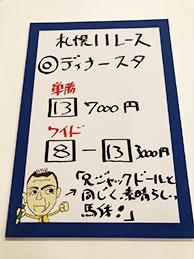 札幌11レース
◎ディナースタ
単勝
13 7000円
ワイド
8-13 3000円
「兄ジャックドールと
同じく、素晴らしい
馬体!」